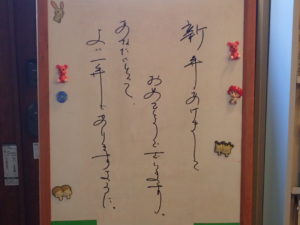 新年あけまして
おめでとうございます。
あなたにとって、
よい一年でありますように。